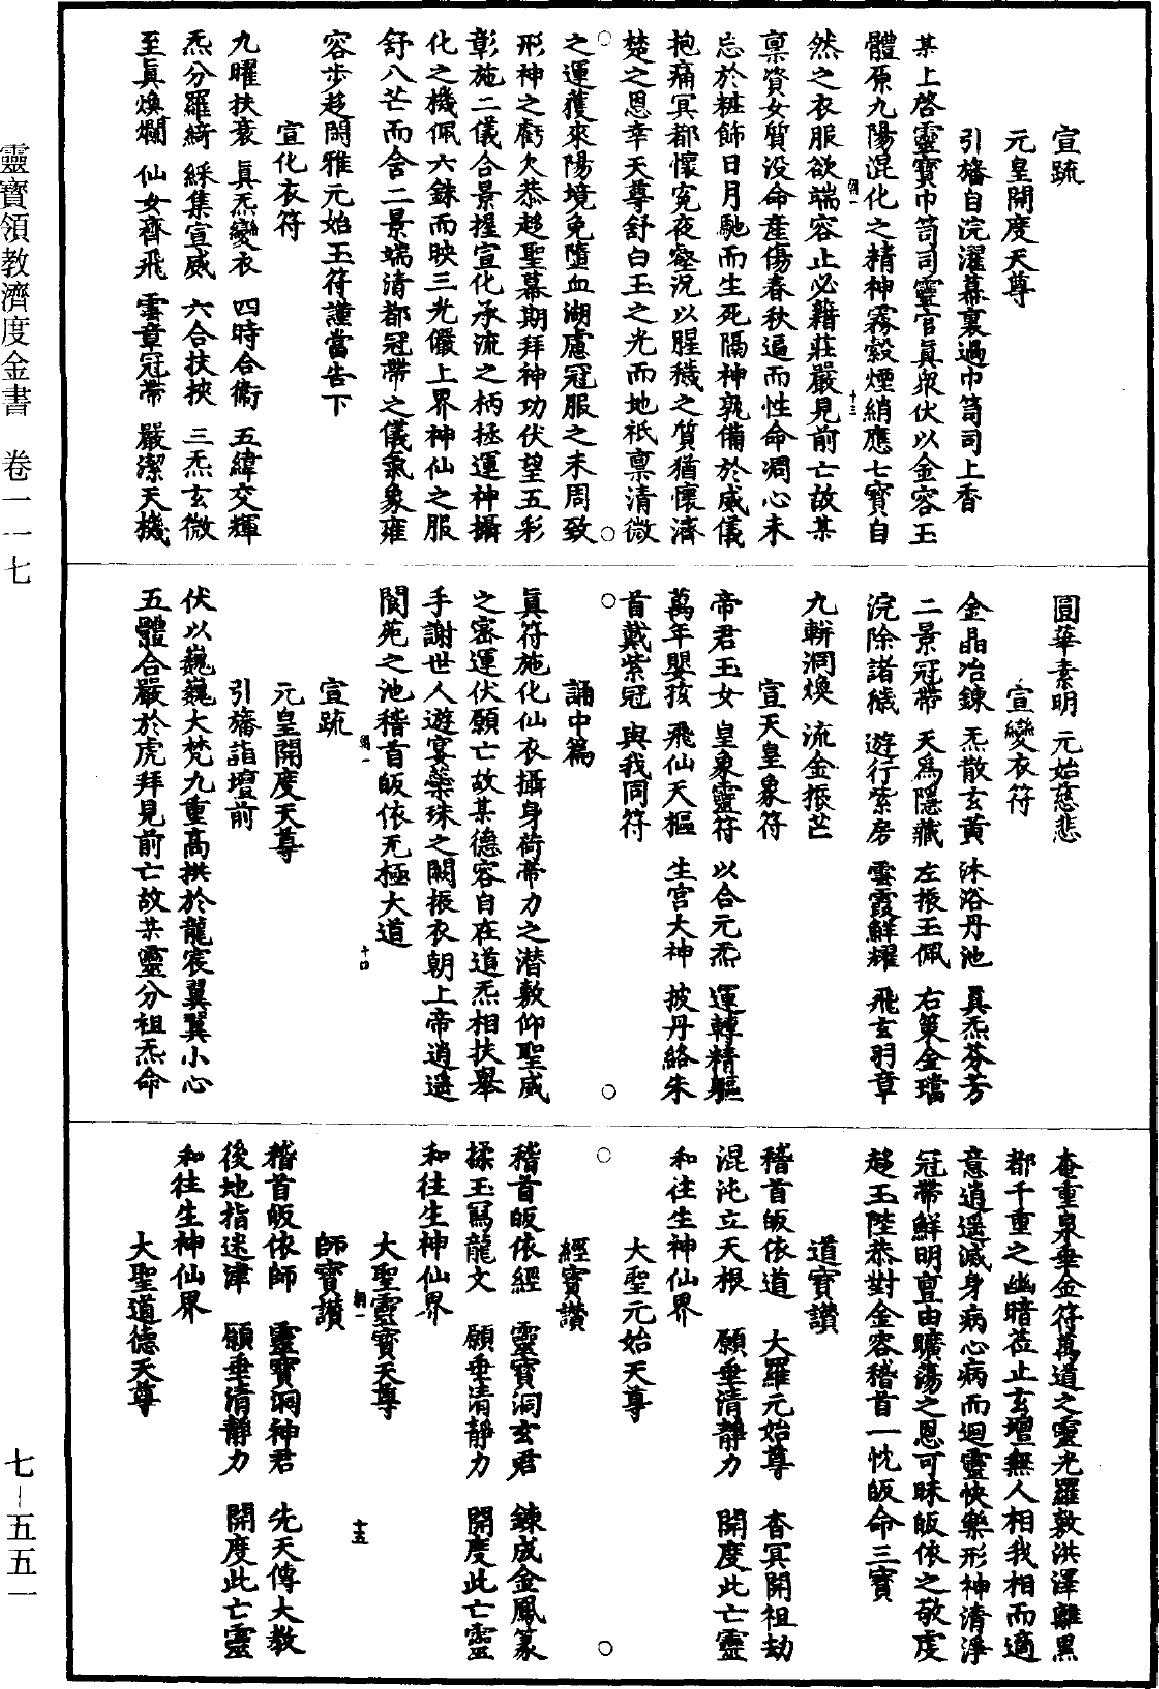 宣疏
元皇開度天尊
引旛自浣濯幕裏過巾笥司上香
某上啓靈寶巾笥司靈官眞衆伏以金容玉
體原九陽混化之精神霧縠煙綃應七寶自
然之衣服欲端容止必藉莊嚴見前亡故某
禀資女質没命産傷春秋逼而性命凋心未
忘於粧飾日月馳而生死隔神孰備於威儀
抱痛冥都懷寃夜壑況以腥穢之質猶懷濟
楚之恩幸天尊舒白玉之光而地祇禀清微
之運獲來陽境免墮血湖慮冠服之未周致
形神之虧欠恭趍聖幕期拜神功伏望五彩
彰施二儀合景握宣化承流之柄拯運神攝
化之機佩六銖而映三光儼上界神仙之服
舒八芒而含二景端清都冠帶之儀氣象雍
容步趍閑雅元始玉符謹當告下
宣化衣符
九曜扶衰 眞炁變衣 四時合衛 五緯交輝
炁分羅綺 綵集宣威 六合扶挾 三炁玄微
至眞煥爛 仙女齊飛 雲章冠帶 嚴潔天機
圓華素明 元始慈悲
宣變衣符
金晶冶鍊 炁散玄黄 沐浴丹池 眞炁芬芳
二景冠帶 天爲隱藏 左振玉佩 右策金璫
浣除諸穢 遊行紫房 雲霞鮮耀 飛玄羽章
九斬洞煥 流金振芒
宣天皇象符
帝君玉女 皇象靈符 以合元炁 運轉精軀
萬年嬰孩 飛仙天樞 生宫大神 披丹絡朱
首戴紫冠 與我同符
誦中篇
眞符施化仙衣攝身荷帝力之潜敷仰聖威
之密運伏願亡故某德容自在道炁相扶舉
手謝世人遊宴藥珠之闕振衣朝上帝逍遥
閬苑之池稽首皈依无極大道
宣疏
元皇開度天尊
引旛詣壇前
伏以巍巍大梵九重高拱於龍宸翼翼小心
五體合嚴於虎拜見前亡故某靈分祖炁命
奄重泉垂金符萬道之靈光羅敷洪澤離黑
都千重之幽暗莅止玄壇無人相我相而適
意逍遥滅身病心病而迴靈快樂形神清淨
冠帶鮮明亶由曠蕩之恩可昧皈依之敬虔
趍玉陛恭對金容稽首一忱皈命三寶
道寶讚
稽首皈依道 大羅元始尊 杳冥開祖劫
混沌立天根 願垂清靜力 開度此亡靈
和往生神仙界
大聖元始天尊
經寶讚
稽首皈依經 靈寶洞玄君 鍊成金鳳篆
揉玉寫龍文 願垂清靜力 開度此亡靈
和往生神仙界
大聖靈寶天尊
師寶讚
稽首皈依師 靈寶洞神君 先天傳大教
後地指迷津 願垂清靜力 開度此亡靈
和往生神仙界
大聖道德天尊
靈寶領教濟度金書 卷一一七
七－五五一